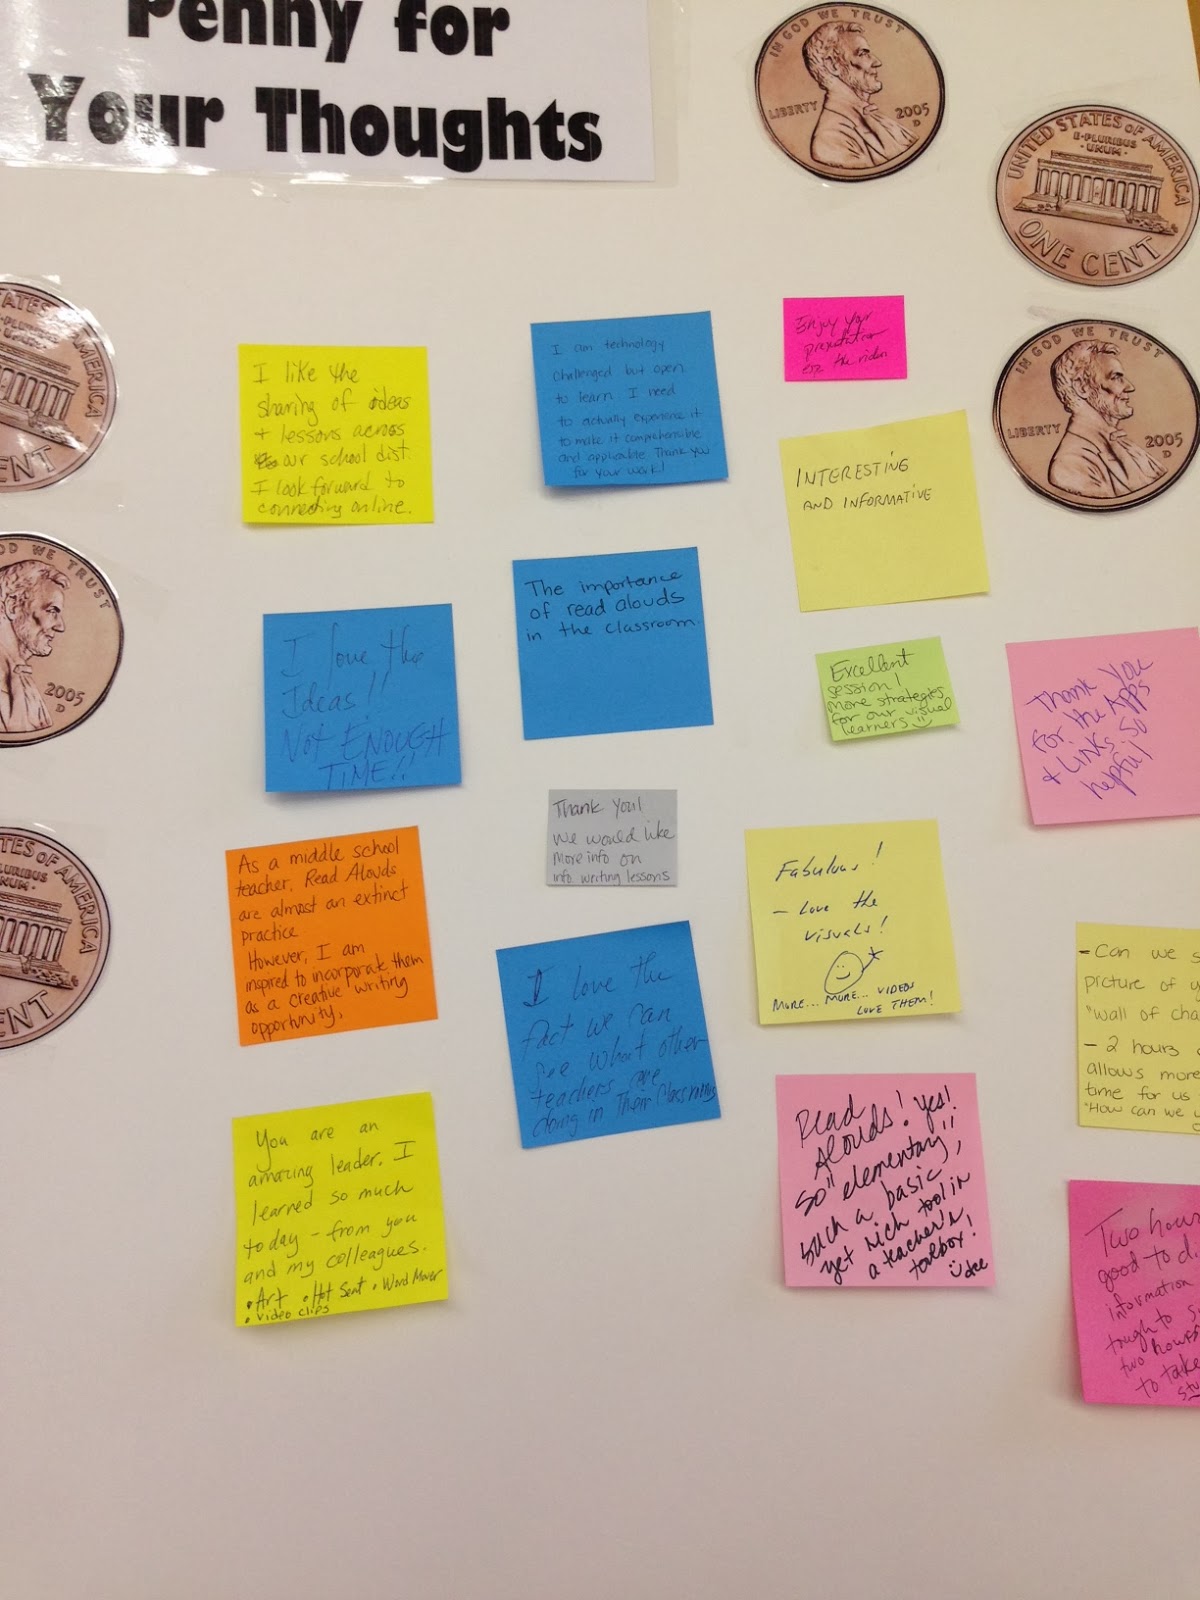 Penny for
Your Thoughts
IN GOD WE TRUST
LIBERTY
2005
D
UNITED STATES OF AMERICA
E·PLURIBUS
·UNUM·
ONE CENT
IN GOD WE TRUST
LIBERTY
2005
D
STATES OF AMERICA
PLURIBUS
UNUM·
CENT
GOD WE TRUST
2005
D
STATES OF AMERICA
PLURIBUS
NUM·
CENT
I like the
sharing of ideas
+ lessons across
our school dist.
I look forward to
connecting online.
I am technology
challenged but open
to learn. I need
to actually experience it
to make it comprehensible
and applicable Thank you
for your work!
Enjoy your
presentation
esp. the video
INTERESTING
AND INFORMATIVE
I love the
Ideas!!
NOT ENOUGH
TIME!!
The importance
of read alouds
in the classroom.
Excellent
session!
More strategies
for our visual
learners
Thank you
for the Apps
+ Links so
helpful!
As a middle school
teacher, Read Alouds
are almost an extinct
practice
However, I am
inspired to incorporate them
as a creative writing
opportunity.
Thank you!
We would like
more info on
info writing lessons
Fabulous!
- Love the
visuals!
MORE... MORE... VIDEOS
LOVE THEM!
I love the
fact we can
see what other
teachers are
doing in Their Classrooms
- Can we s
picture of y
"wall of cha
- 2 hours
allows more
time for us
"How can we u
You are an
amazing leader. I
learned so much
today - from you
and my colleagues.
• Art • Hot Seat • Word Mover
• video clips
Read
Alouds! Yes!
So "elementary",
such a basic,
yet rich tool in
a teacher's
toolbox!
Two hour
good to d
information
tough to s
two hours
to take
stu